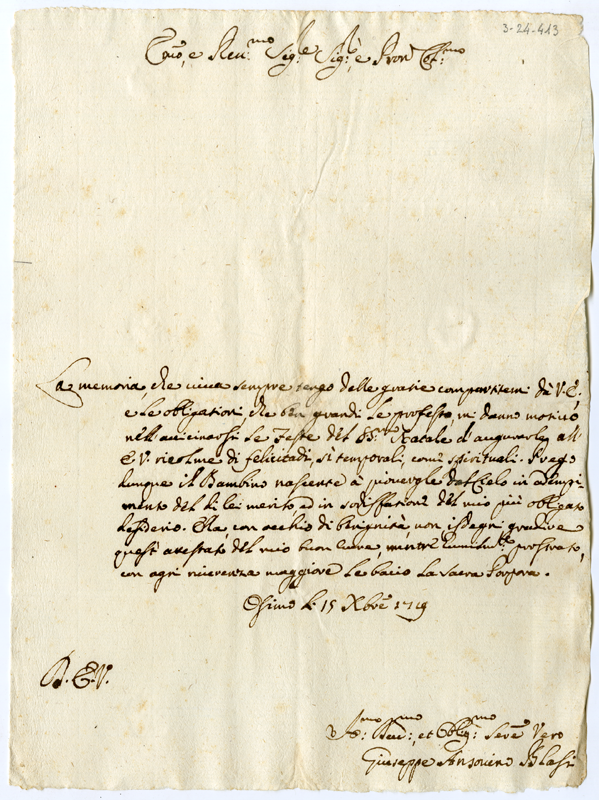 3-24-413
Emo, e Reu.mo Sig.re Sig.re, e Pron Col.mo
La memoria, che uiua sempre tengo delle gratie compartitemi da V. E.
e le obligationi, che ben grandi le professo, mi danno motiuo
nell' auicinarsi le Feste del SS.mo Natale d' augurarle all'
E. V. ricolme di felicitadi, sì temporali, come spirituali. Prego
dunque il Bambino nascente à piouerle dal Cielo in adempi-
mento del di lei merito, ed in sodisfattione del mio più obligato
desiderio. Ma con occhio di benignità, non isdegni gradire
questi attestati del mio buon cuore, mentre humilm.te prostrato,
con ogni riuerenza maggiore le bacio la Sacra Porpora.
Osimo li 15 Xbre 1719
D. E. V.
Deu.mo, et Oblig.mo Seru.e Vero
Giuseppe Ansouino Blasi